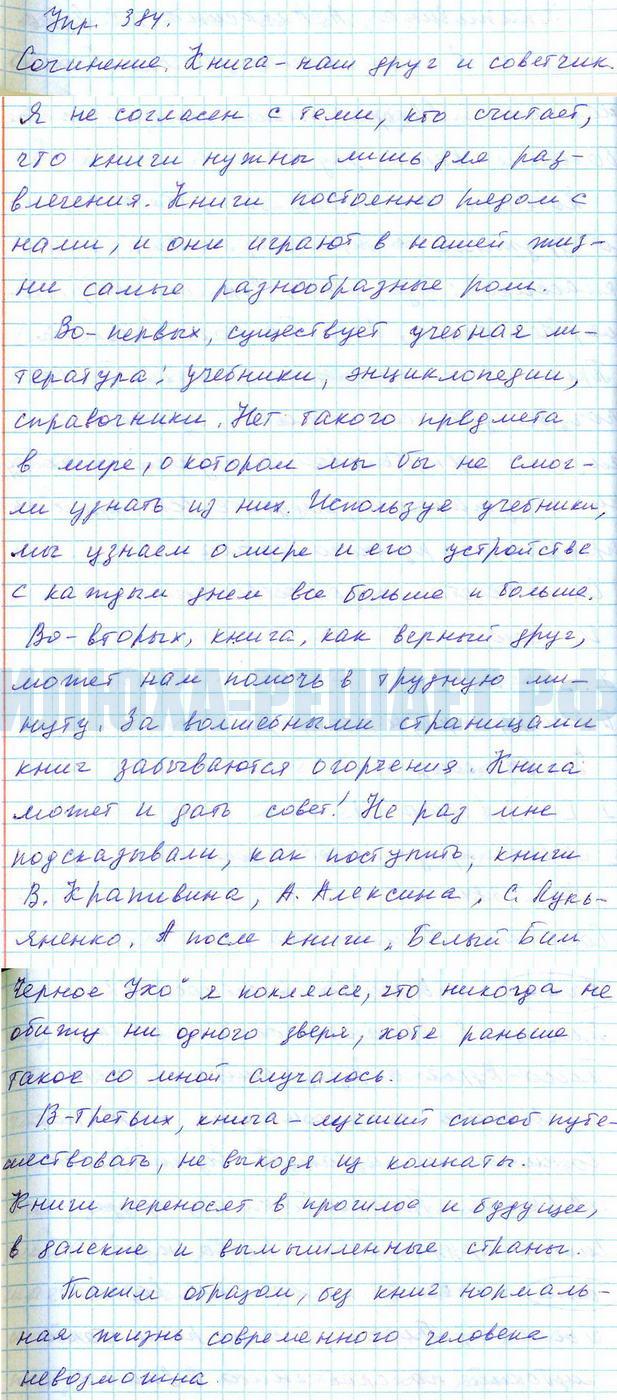 Упр. 384.
Сочинение. Книга – наш друг и советчик.
Я не согласен с теми, кто считает,
что книги нужны лишь для раз-
влечения. Книги постоянно рядом с
нами, и они играют в нашей жиз-
ни самые разнообразные роли.
Во-первых, существует учебная ли-
тература: учебники, энциклопедии,
справочники. Нет такого предмета
в мире, о котором мы бы не смог-
ли узнать из них. Используя учебники,
мы узнаем о мире и его устройстве
с каждым днем все больше и больше.
Во-вторых, книга, как верный друг,
может нам помочь в трудную ми-
нуту. За волшебными страницами
книг забываются огорчения. Книга
может и дать совет! Не раз мне
подсказывали, как поступить, книги
В. Крапивина, А. Алексина, С. Лукь-
яненко. А после книги „Белый Бим
Черное Ухо“ я поклялся, что никогда не
обижу ни одного зверя, хотя раньше
такое со мной случалось.
В-третьих, книга – лучший способ путе-
шествовать, не выходя из комнаты.
Книги переносят в прошлое и будущее,
в далекие и вымышленные страны.
Таким образом, без книг нормаль-
ная жизнь современного человека
невозможна.